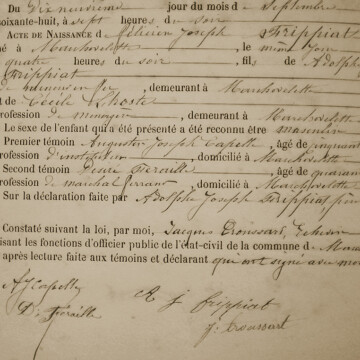 Du dix neuvième jour du mois de Septembre
soixante-huit, à sept heures du soir
ACTE DE NAISSANCE de félicien Joseph Frippiat
né à Marchovelette, le même jour
quatre heures du soir, fils de Adolphe
Frippiat
de , demeurant à Marchovelette
et de Cécile Lhoste
profession de ménagère, demeurant à Marchovelette
Le sexe de l'enfant qui a été présenté a été reconnu être masculin
Premier témoin Augustin Joseph Capelle, âgé de
profession d'instituteur, domicilié à Marchovelette
Second témoin Désiré Féraille, âgé de quarante
profession de maréchal ferrant, domicilié à Marchovelette
Sur la déclaration faite par Adolphe Joseph Frippiat père
Constaté suivant la loi, par moi, Jacques Troussart, Echevin
faisant les fonctions d'officier public de l'état-civil de la commune de Marc
après lecture faite aux témoins et déclarant qui ont signé avec moi
AJ Capelle
D. Féraille
A j frippiat
J. Troussart